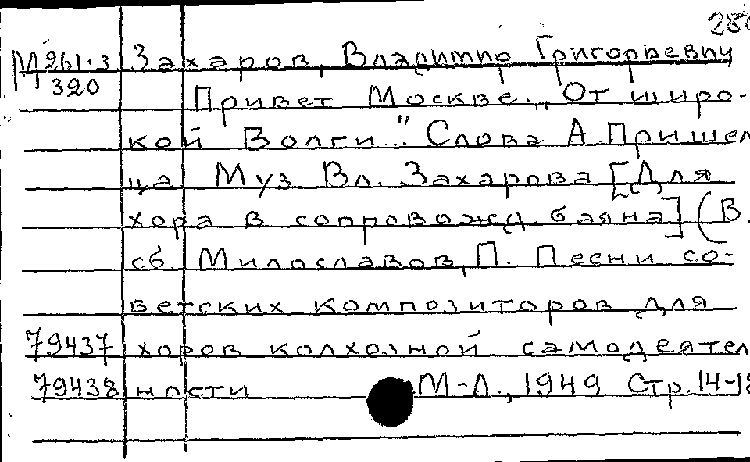 280
М 261-3 Захаров, Владимир Григорьевич
320 Привет Москве. „От широ-
кой Волги." Слова А Пришел
ца Муз Вл. Захарова [Для
хора в сопровожд. баяна] (В.
сб Милославов, П. Песни со-
ветских композиторов для
79437 хоров колхозной самодеятел
79438 ности М-Л., 1949 Стр. 14-18